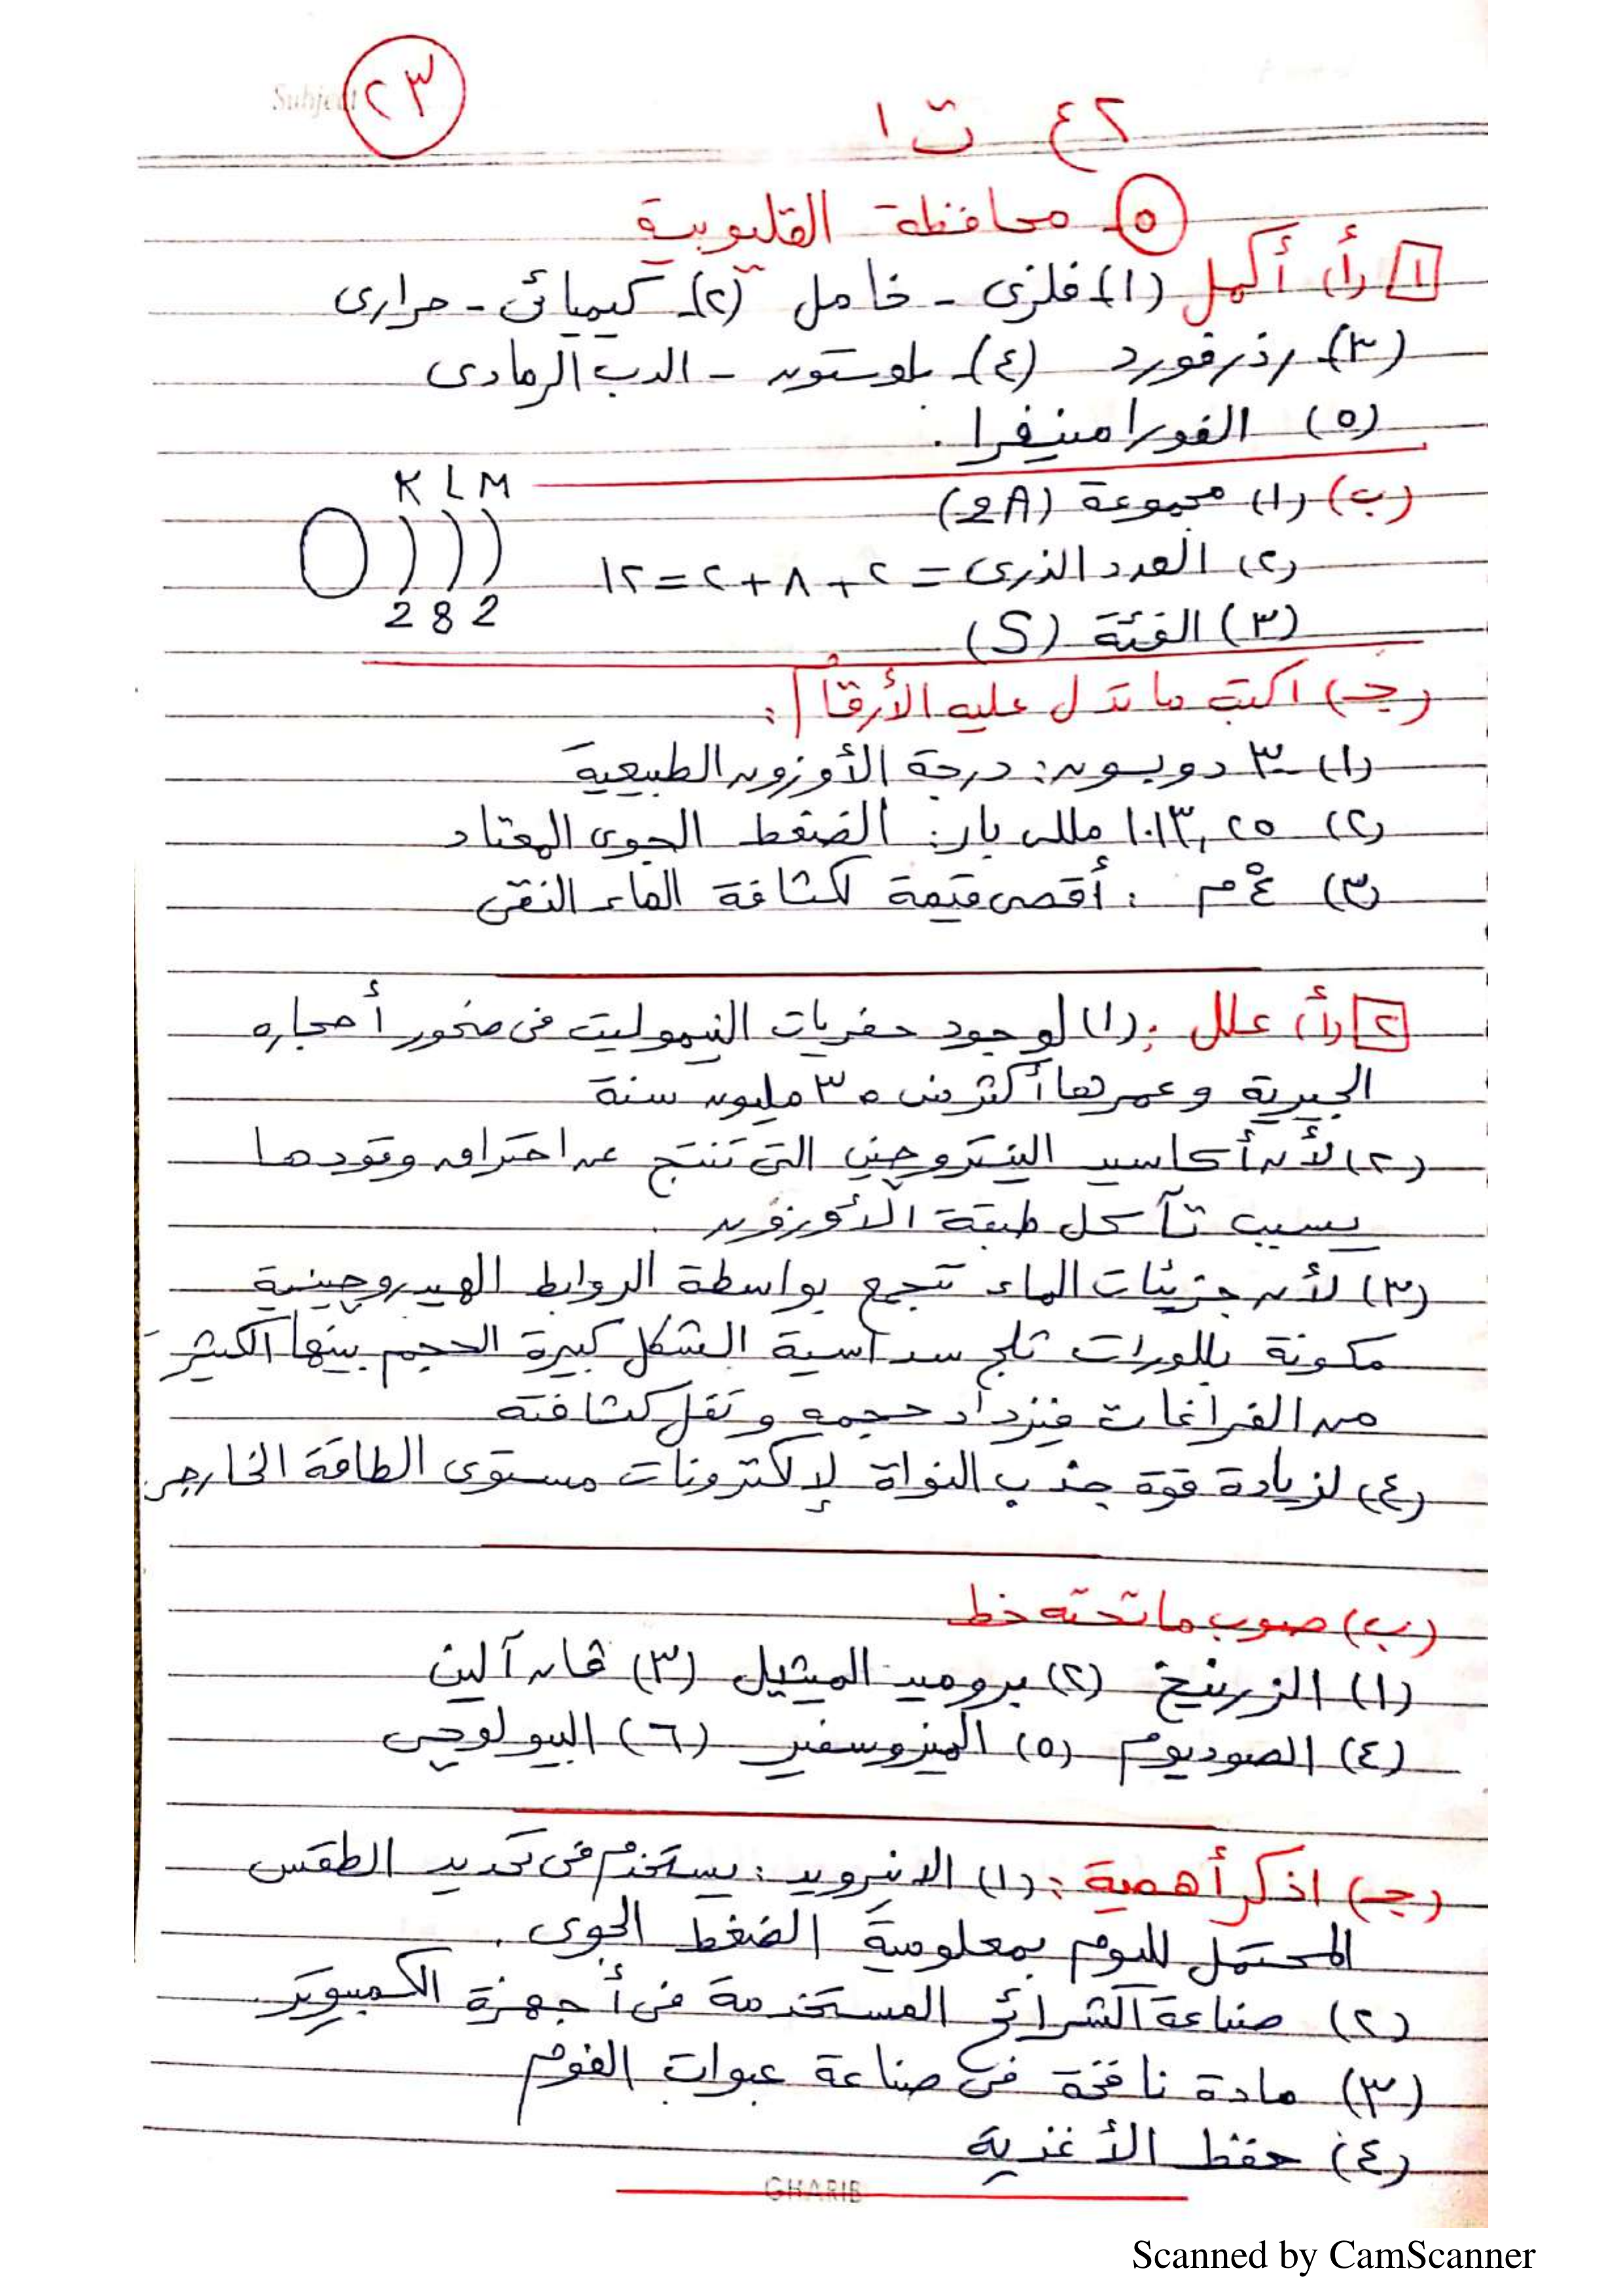 Subject ٢٣
٢ع ت١
٥- محافظة القليوبية
١ (أ) أكمل (١) فلزى - خامل (٢)- كيميائى - حرارى
(٣)- رذرفورد (٤)- بلوستون - الدب الرمادى
(٥) الفورامنيفرا .
K L M
(ب) (١) مجموعة (2A)
(٢) العدد الذرى = ٢ + ٨ + ٢ = ١٢
2 8 2
(٣) الفئة (S)
(جـ) اكتب ما تدل عليه الأرقام :
(١) ٣٠٠ دوبسون : درجة الأوزون الطبيعية
(٢) ١٠١٣,٢٥ مللى بار : الضغط الجوى المعتاد
(٣) ٤°م : أقصى قيمة لكثافة الماء النقى
٢ (أ) علل : (١) لوجود حفريات النيموليت فى صخور أحجاره
الجيرية وعمرها أكثر من ٣٥ مليون سنة
(٢) لأن أكاسيد النيتروجين التى تنتج عن احتراق وقودها
يسبب تآكل طبقة الأوزون .
(٣) لأن جزيئات الماء تتجمع بواسطة الروابط الهيدروجينية
مكونة بللورات ثلج سداسية الشكل كبيرة الحجم بينها الكثير
من الفراغات فيزداد حجمه وتقل كثافته
(٤) لزيادة قوة جذب النواة لإلكترونات مستوى الطاقة الخارجى
(ب) صوب ما تحته خط
(١) الزرنيخ (٢) بروميد الميثيل (٣) ڤان آلين
(٤) الصوديوم (٥) الميزوسفير (٦) البيولوجى
(جـ) اذكر أهمية : (١) الانيرويد : يستخدم فى تحديد الطقس
المحتمل لليوم بمعلومية الضغط الجوى .
(٢) صناعة الشرائح المستخدمة فى أجهزة الكمبيوتر
(٣) مادة نافخة فى صناعة عبوات الفوم
(٤) حفظ الأغذية
GHARIB
Scanned by CamScanner